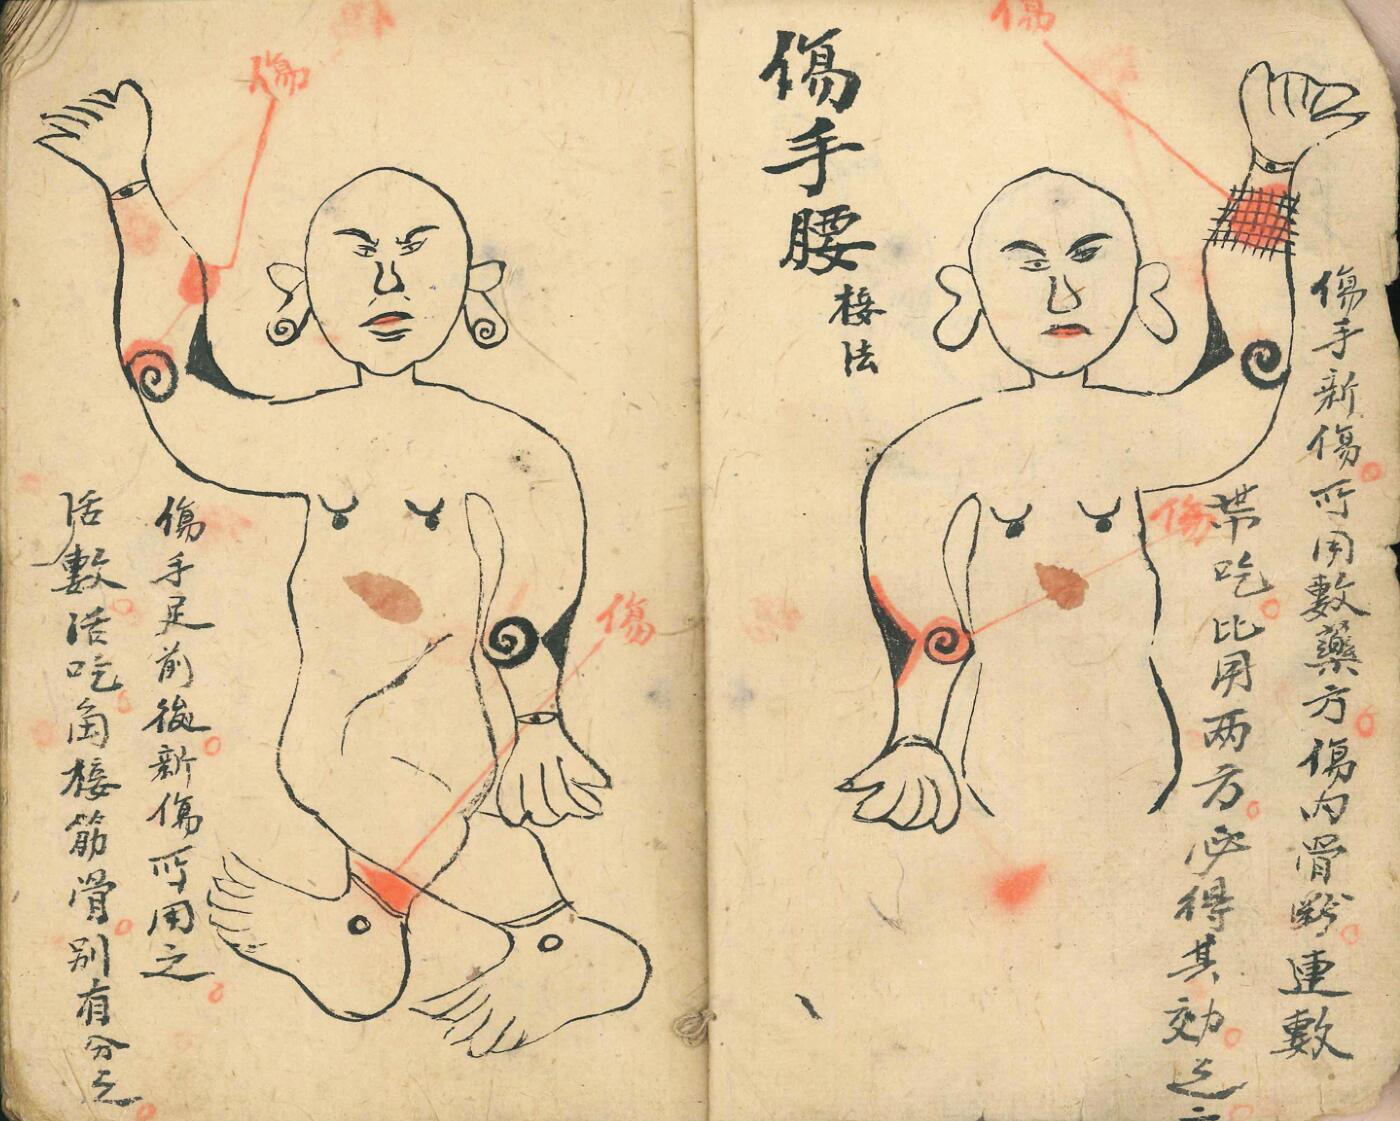 傷
傷手新傷所用數藥方傷内骨斷連數
傷
帶吃比用两方必得其効之
傷手腰
接法
傷
傷
傷手足前後新傷所用之
活數活吃接筋骨别有分之